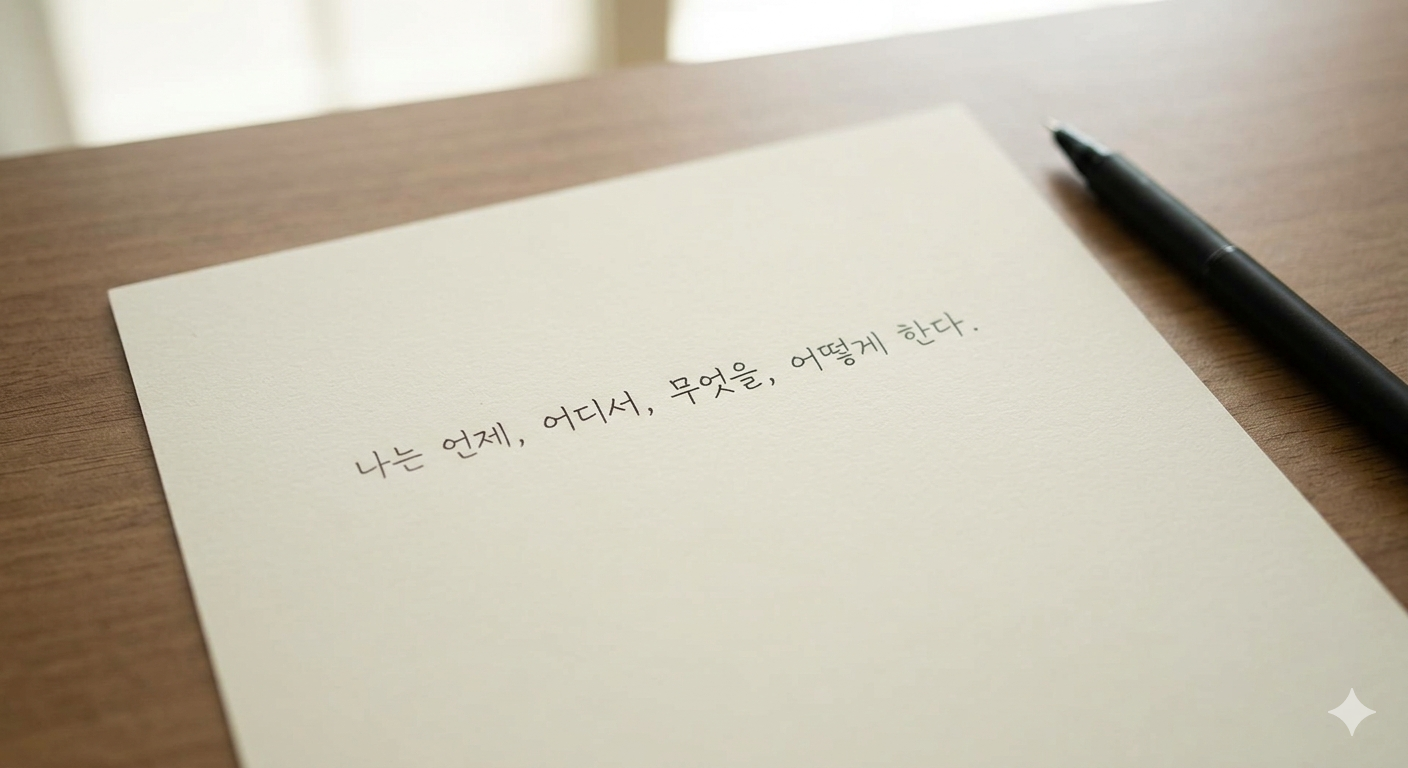 나는 언제, 어디서, 무엇을, 어떻게 한다.